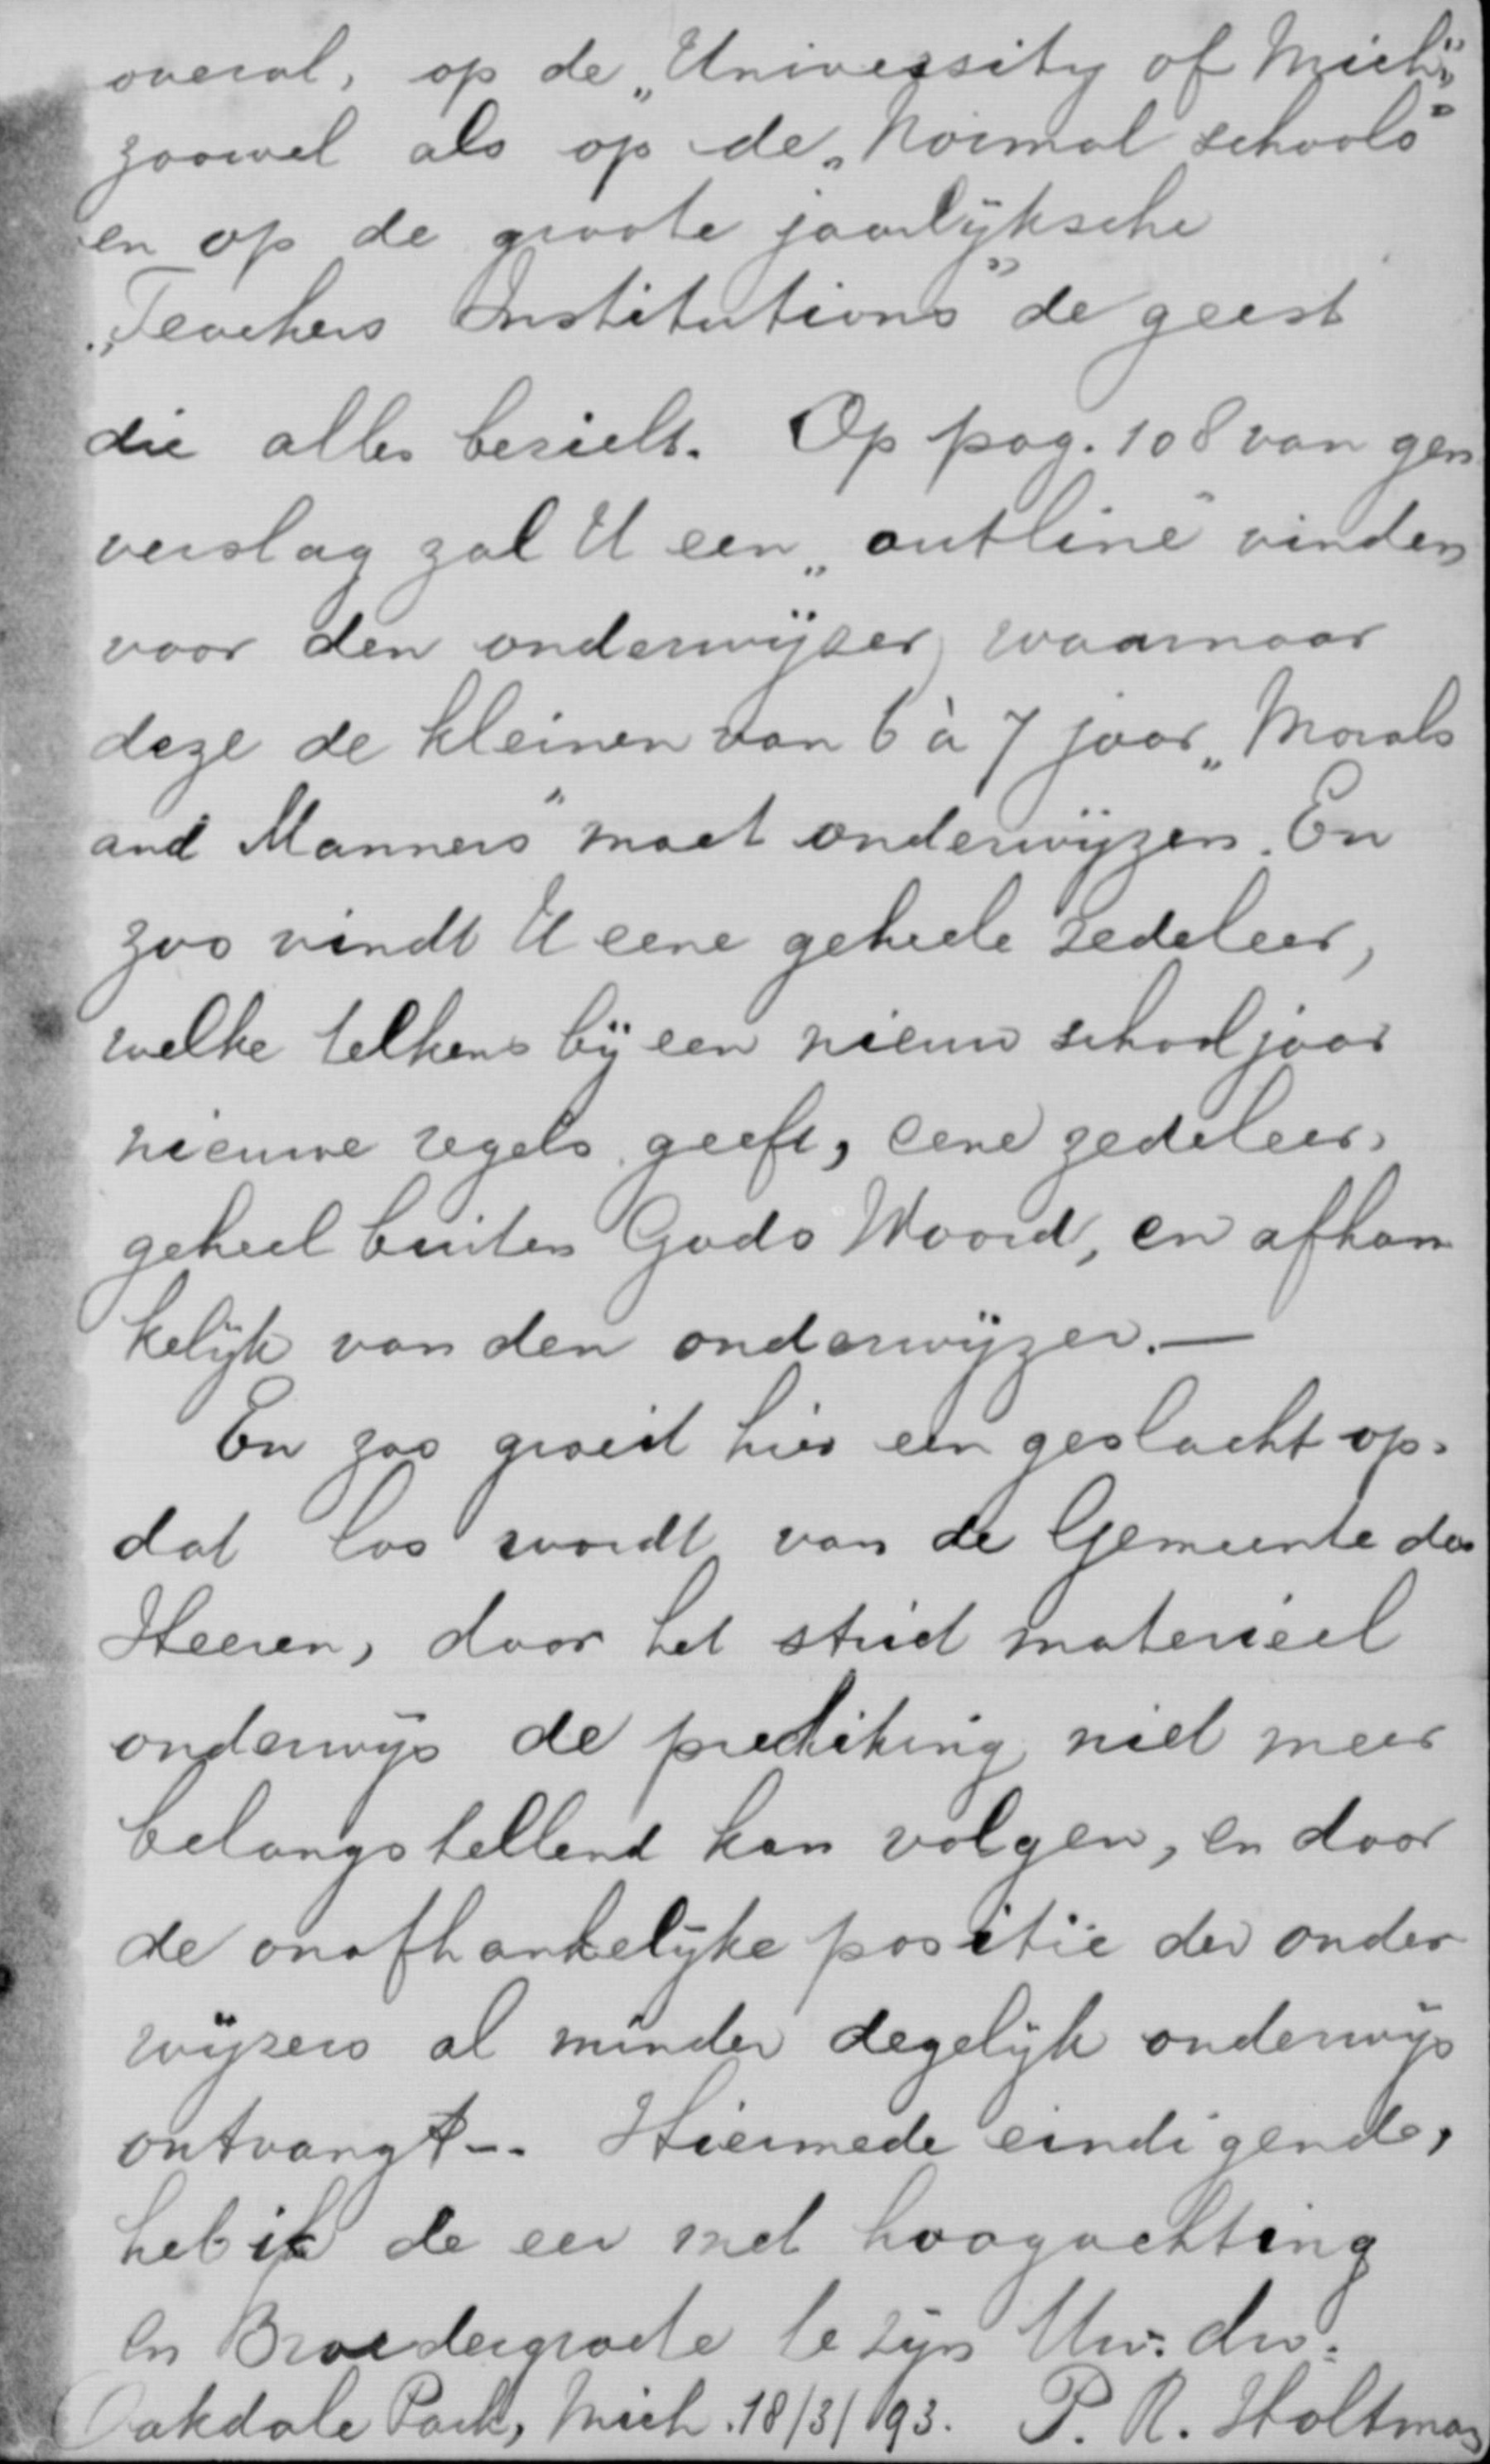 overal, op de „University of Mich:"
zoowel als op de „Normal schools"
en op de groote jaarlijksche
„Teachers Institutions" de geest
die alles bezielt. Op pag. 108 van gen
verslag zal U een „outline" vinden
voor den onderwijzer, waarnaar
deze de kleinen van 6 à 7 jaar „Morals
and Manners" moet onderwijzen. En
zoo vindt U eene geheele zedeleer,
welke telkens bij een nieuw schooljaar
nieuwe regels geeft, eene zedeleer,
geheel buiten Gods Woord, en afhan
kelijk van den onderwijzer.—
En zoo groeit hier een geslacht op,
dat los wordt van de Gemeente des
Heeren, door het strict materieel
onderwijs de prediking niet meer
belangstellend kan volgen, en door
de onafhankelijke positie der onder
wijzers al minder degelijk onderwijs
ontvangt.-. Hiermede eindigende,
heb ik de eer met hoogachting
en Broedergroete te zijn Uw: dw:
Oakdale Park, Mich. 18/3/93. P. R. Holtman